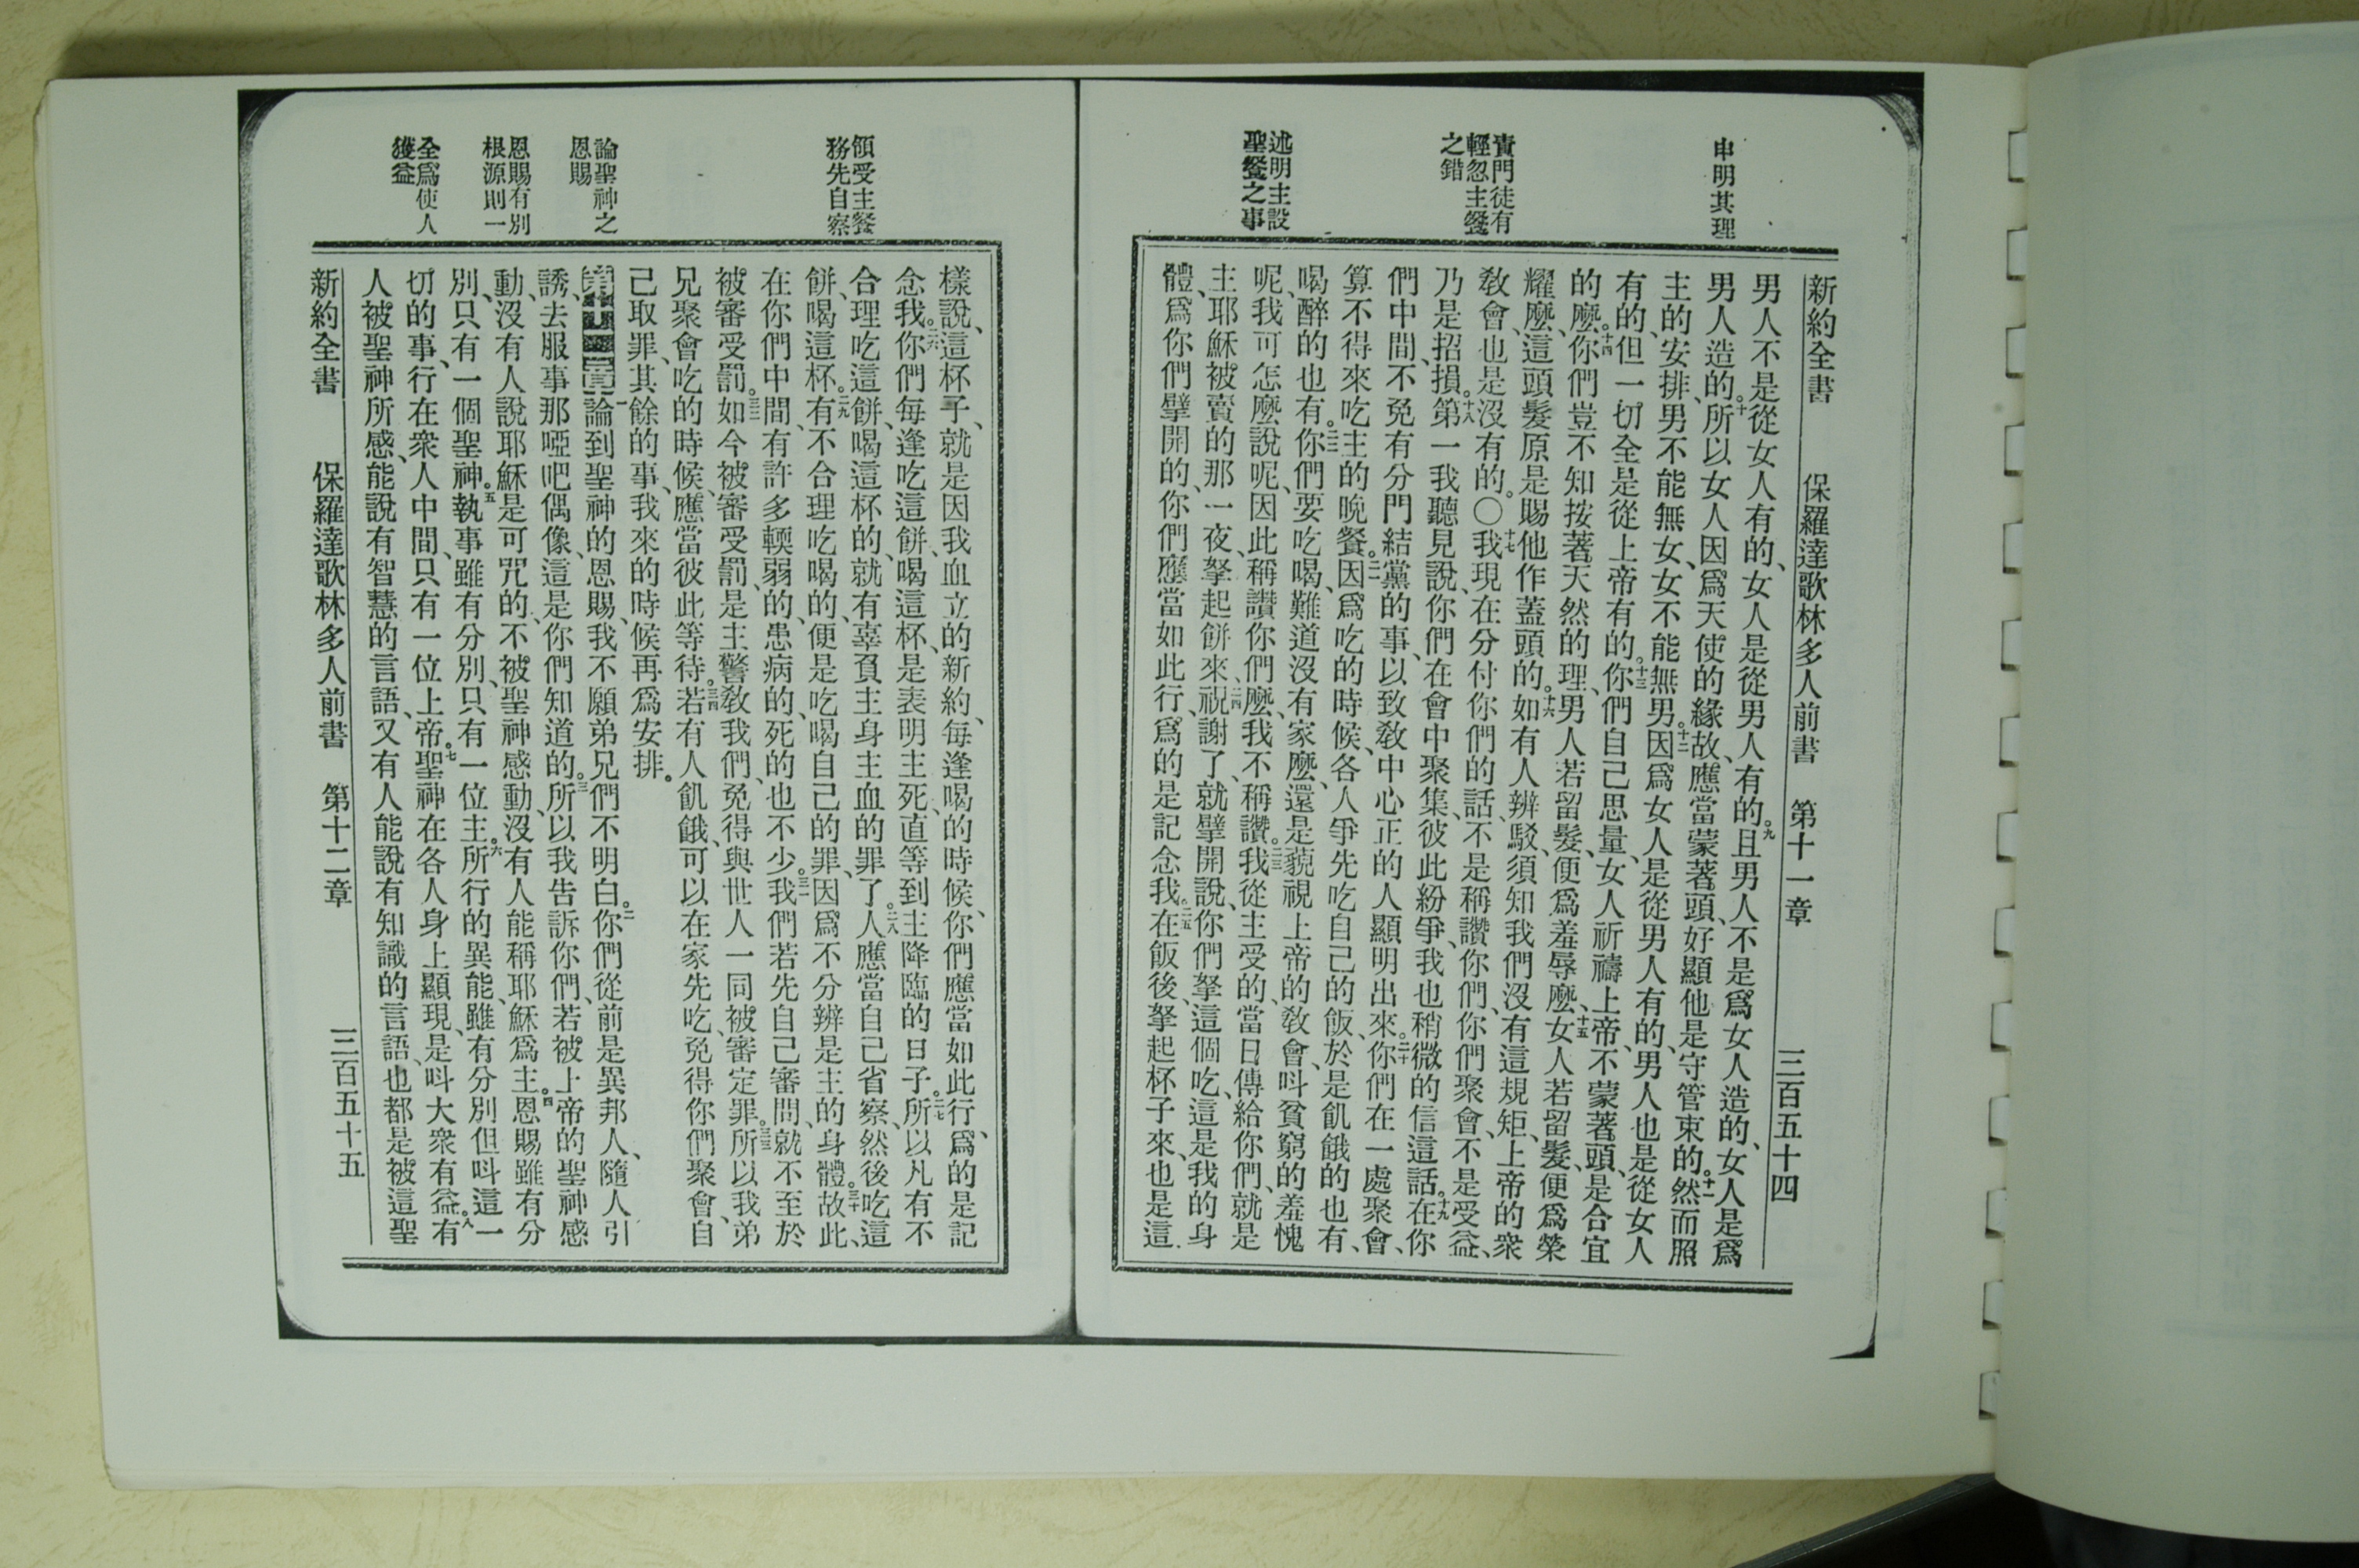 申明其理
責門徒有
輕忽主餐
之錯
述明主設
聖餐之事
新約全書　保羅達歌林多人前書　第十一章　三百五十四
男人不是從女人有的、女人是從男人有的。九且男人不是爲女人造的、女人是爲
男人造的。十所以女人因爲天使的緣故、應當蒙著頭、好顯他是守管束的。十一然而照
主的安排、男不能無女、女不能無男。十二因爲女人是從男人有的、男人也是從女人
有的、但一切全是從上帝有的。十三你們自己思量、女人祈禱上帝、不蒙著頭、是合宜
的麼。十四你們豈不知按著天然的理、男人若留髮、便爲羞辱麼、十五女人若留髮、便爲榮
耀麼、這頭髮原是賜他作蓋頭的。十六如有人辨駁、須知我們沒有這規矩、上帝的衆
敎會、也是沒有的。○十七我現在分付你們的話、不是稱讚你們、你們聚會、不是受益、
乃是招損。十八第一我聽見說、你們在會中聚集、彼此紛爭、我也稍微的信這話。十九在你
們中間、不免有分門結黨的事、以致敎中心正的人顯明出來。二十你們在一處聚會、
算不得來吃主的晚餐。二一因爲吃的時候、各人爭先吃自己的飯、於是飢餓的也有、
喝醉的也有。二二你們要吃喝、難道沒有家麼、還是藐視上帝的敎會、呌貧窮的羞愧
呢、我可怎麼說呢、因此稱讚你們麼、我不稱讚。二三我從主受的、當日傳給你們、就是
主耶穌被賣的那一夜、拏起餅來、二四祝謝了、就擘開說、你們拏這個吃、這是我的身
體、爲你們擘開的、你們應當如此行、爲的是記念我。二五在飯後、拏起杯子來、也是這
領受主餐
務先自察
論聖神之
恩賜
恩賜有別
根源則一
全爲使人
獲益
樣說、這杯子、就是因我血立的新約、每逢喝的時候、你們應當如此行、爲的是記
念我。二六你們每逢吃這餅、喝這杯、是表明主死、直等到主降臨的日子。二七所以凡有不
合理吃這餅、喝這杯的、就有辜負主身主血的罪了、二八人應當自己省察、然後吃這
餅、喝這杯。二九有不合理吃喝的、便是吃喝自己的罪、因爲不分辨是主的身體。三十故此、
在你們中間、有許多輭弱的、患病的、死的也不少。三一我們若先自己審問、就不至於
被審受罰。三二如今被審受罰、是主警敎我們、免得與世人一同被審定罪。三三所以我弟
兄聚會吃的時候、應當彼此等待。三四若有人飢餓、可以在家先吃、免得你們聚會、自
己取罪、其餘的事、我來的時候再爲安排。
第十二章一論到聖神的恩賜、我不願弟兄們不明白。二你們從前是異邦人、隨人引
誘、去服事那啞吧偶像、這是你們知道的。三所以我告訴你們、若被上帝的聖神感
動、沒有人說耶穌是可咒的、不被聖神感動、沒有人能稱耶穌爲主。四恩賜雖有分
別、只有一個聖神。五執事雖有分別、只有一位主。六所行的異能、雖有分別但呌這一
切的事、行在衆人中間、只有一位上帝。七聖神在各人身上顯現、是呌大衆有益。八有
人被聖神所感、能說有智慧的言語、又有人能說有知識的言語、也都是被這聖
新約全書　保羅達歌林多人前書　第十二章　三百五十五